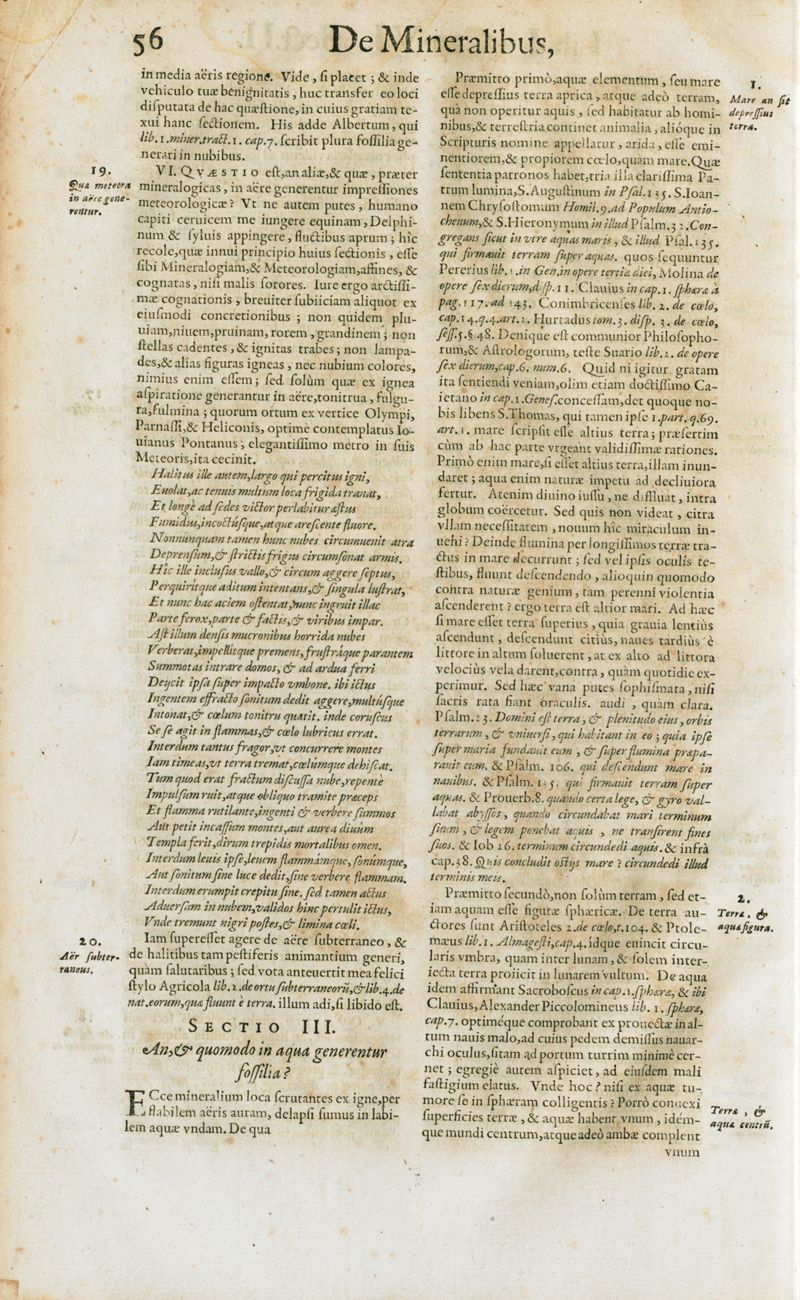 56
De Mineralibus,
in media aëris regione. Vide, ſi placet; & inde
vehiculo tuæ benignitatis, huc transfer eo loci
diſputata de hac quæſtione, in cuius gratiam te-
xui hanc ſectionem. His adde Albertum, qui
lib.1.miner.tract.1. cap.7. ſcribit plura foſſilia ge-
nerari in nubibus.
19.
Qua meteora
in aëre gene-
rentur.
VI. QVÆSTIO eſt, an aliæ, & quæ, præter
mineralogicas, in aëre generentur impreſſiones
meteorologicæ? Vt ne autem putes, humano
capiti ceruicem me iungere equinam, Delphi-
num & ſyluis appingere, fluctibus aprum; hîc
recole, quæ innui principio huius ſectionis, eſſe
ſibi Mineralogiam, & Meteorologiam, affines, &
cognatas, niſi malis ſorores. Iure ergo arctiſſi-
mæ cognationis, breuiter ſubiiciam aliquot ex
eiuſmodi concretionibus; non quidem plu-
uiam, niuem, pruinam, rorem, grandinem; non
ſtellas cadentes, & ignitas trabes; non lampa-
des, & alias figuras igneas, nec nubium colores,
nimius enim eſſem; ſed ſolùm quæ ex ignea
aſpiratione generantur in aëre, tonitrua, fulgu-
ra, fulmina; quorum ortum ex vertice Olympi,
Parnaſſi, & Heliconis, optime contemplatus Io-
uianus Pontanus; elegantiſſimo metro in ſuis
Meteoris, ita cecinit.
Halitus ille autem, largo qui percitus igni,
Euolat, ac tenuis multum loca frigida tranat,
Et longè ad ſedes victor perlabitur æſtus
Fumidus, incoctúſque, atque areſcente fluore.
Nonnunquam tamen hunc nubes circumuenit atra
Deprenſum, & ſtrictis frigus circumſonat armis.
Hic ille incluſus vallo, & circum aggere ſeptus,
Perquiritque aditum intentans, & ſingula luſtrat,
Et nunc hac aciem oſtentat, nunc ingruit illac
Parte ferox, parte & factis, & viribus impar.
Aſt illum denſis mucronibus horrida nubes
Verberat, impellitque premens, fruſtráque parantem
Summotas intrare domos, & ad ardua ferri
Deijcit ipſa ſuper impacto vmbone. ibi ictus
Ingentem effracto ſonitum dedit aggere, multúſque
Intonat, & cœlum tonitru quatit. inde coruſcus
Se ſe agit in flammas, & cœlo lubricus errat.
Interdum tantus fragor, vt concurrere montes
Iam timeas, vt terra tremat, cœlúmque dehiſcat.
Tum quod erat fractum diſcuſſa nube, repentè
Impulſum ruit, atque obliquo tramite præceps
Et flamma rutilante, ingenti & verbere ſummos
Aut petit incaſſum montes, aut aurea diuûm
Templa ferit, dirum trepidis mortalibus omen.
Interdum leuis ipſe, leuem flammámque, ſonúmque,
Aut ſonitum ſine luce dedit, ſine verbere flammam.
Interdum erumpit crepitu ſine. ſed tamen actus
Aduerſam in nubem, validos hinc pertulit ictus,
Vnde tremunt nigri poſtes, & limina cœli.
20.
Aër ſubter-
raneus.
Iam ſupereſſet agere de aëre ſubterraneo, &
de halitibus tam peſtiferis animantium generi,
quàm ſalutaribus; ſed vota anteuertit mea felici
ſtylo Agricola lib.2.de ortu ſubterraneorū, & lib.4.de
nat.eorum, qua fluunt è terra. illum adi, ſi libido eſt.
SECTIO III.
An, & quomodo in aqua generentur
foſſilia?
ECce mineralium loca ſcrutantes ex igne, per
flabilem aëris auram, delapſi ſumus in labi-
lem aquæ vndam. De qua
1.
Mare an ſit
depreſſius
terra.
Præmitto primò, aquæ elementum, ſeu mare
eſſe depreſſius terra aprica, atque adeò terram,
quà non operitur aquis, ſed habitatur ab homi-
nibus, & terreſtria continet animalia, alióque in
Scripturis nomine appellatur, arida, eſſe emi-
nentiorem, & propiorem cœlo, quàm mare. Quæ
ſententia patronos habet, tria illa clariſſima Pa-
trum lumina, S. Auguſtinum in Pſal.135. S. Ioan-
nem Chryſoſtomum Homil.9.ad Populum Antio-
chenum, & S. Hieronymum in illud Pſalm.32. Con-
gregans ſicut in vtre aquas maris, & illud Pſal.135.
qui firmauit terram ſuper aquas. quos ſequuntur
Pererius lib.1.in Gen.in opere tertiæ diei, Molina de
opere ſex dierum, diſp.11. Clauius in cap.1. ſphæra à
pag.117. ad 143. Conimbricenſes lib. 2. de cœlo,
cap.14.q.4.art.2. Hurtadus tom.3. diſp. 3. de cœlo,
ſeſſ.5.§.48. Denique eſt communior Philoſopho-
rum, & Aſtrologorum, teſte Suario lib.2. de opere
ſex dierum, cap.6. num.6. Quid ni igitur gratam
ita ſentiendi veniam, olim etiam doctiſſimo Ca-
ietano in cap.1.Geneſ. conceſſam, det quoque no-
bis libens S. Thomas, qui tamen ipſe 1.part.q.69.
art.1. mare ſcripſit eſſe altius terra; præſertim
cùm ab hac parte vrgeant validiſſimæ rationes.
Primò enim mare, ſi eſſet altius terra, illam inun-
daret; aqua enim naturæ impetu ad decliuiora
fertur. Atenim diuino iuſſu, ne diffluat, intra
globum coërcetur. Sed quis non videat, citra
vllam neceſſitatem, nouum hîc miraculum in-
uehi? Deinde flumina per longiſſimos terræ tra-
ctus in mare decurrunt; ſed vel ipſis oculis te-
ſtibus, fluunt deſcendendo, alioquin quomodo
contra naturæ genium, tam perenni violentia
aſcenderent? ergo terra eſt altior mari. Ad hæc
ſi mare eſſet terra ſuperius, quia grauia lentiùs
aſcendunt, deſcendunt citiùs, naues tardiùs è
littore in altum ſoluerent, at ex alto ad littora
velociùs vela darent, contra, quàm quotidie ex-
perimur. Sed hæc vana putes ſophiſmata, niſi
ſacris rata fiant oraculis. audi, quàm clara.
Pſalm.23. Domini eſt terra, & plenitudo eius, orbis
terrarum, & vniuerſi, qui habitant in eo; quia ipſe
ſuper maria fundauit eum, & ſuper flumina præpa-
rauit eum. & Pſalm. 106. qui deſcendunt mare in
nauibus. & Pſalm. 135. qui firmauit terram ſuper
aquas. & Prouerb.8. quando certa lege, & gyro val-
labat abyſſos, quando circundabat mari terminum
ſuum, & legem ponebat aquis, ne tranſirent fines
ſuos. & Iob 26. terminum circundedi aquis. & infrà
cap.38. Quis concludit oſtijs mare? circundedi illud
terminis meis.
2.
Terra, &
aqua figura.
Præmitto ſecundò, non ſolùm terram, ſed et-
iam aquam eſſe figuræ ſphæricæ. De terra au-
ctores ſunt Ariſtoteles 2.de cœlo, t.104. & Ptole-
mæus lib.1. Almageſti, cap.4. idque euincit circu-
laris vmbra, quam inter lunam, & ſolem inter-
iecta terra proiicit in lunarem vultum. De aqua
idem affirmant Sacroboſcus in cap.1.ſphæra, & ibi
Clauius, Alexander Piccolomineus lib. 1. ſphæra,
cap.7. optiméque comprobant ex prouectæ in al-
tum nauis malo, ad cuius pedem demiſſus nauar-
chi oculus, ſitam ad portum turrim minimè cer-
net; egregiè autem aſpiciet, ad eiuſdem mali
faſtigium elatus. Vnde hoc? niſi ex aquæ tu-
more ſe in ſphæram colligentis? Porrò conuexi
Terra, &
aqua centrū.
ſuperficies terræ, & aquæ habent vnum, idém-
que mundi centrum, atque adeò ambæ complent
vnum